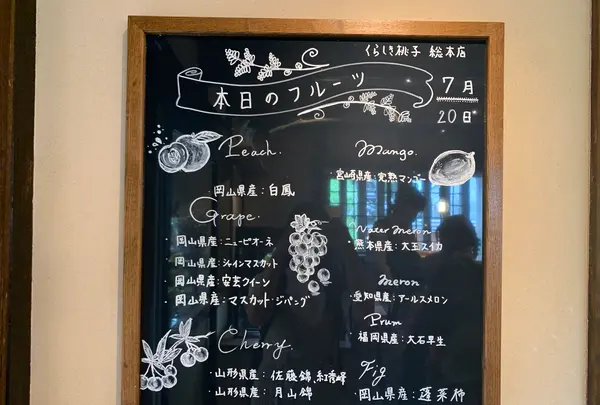 くらしき桃子 総本店
本日のフルーツ
7月
20日
Peach.
・岡山県産:白鳳
Grape.
・岡山県産:ニューピオーネ
・岡山県産:シャインマスカット
・岡山県産:安芸クイーン
・岡山県産:マスカット・ジパング
Cherry.
・山形県産:佐藤錦,紅秀峰
・山形県産:月山錦
Mango.
・宮崎県産:完熟マンゴー
Water meron
・熊本県産:大玉スイカ
meron
・愛知県産:アールスメロン
Prum
・福岡県産:大石早生
Fig
・岡山県産:蓬莱柿